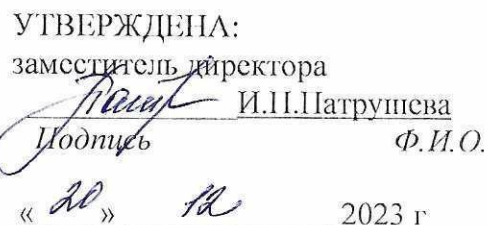 УТВЕРЖДЕНА:
заместитель директора
И.П.Патрушева
Подпись Ф.И.О.
« 20 » 12 2023 г